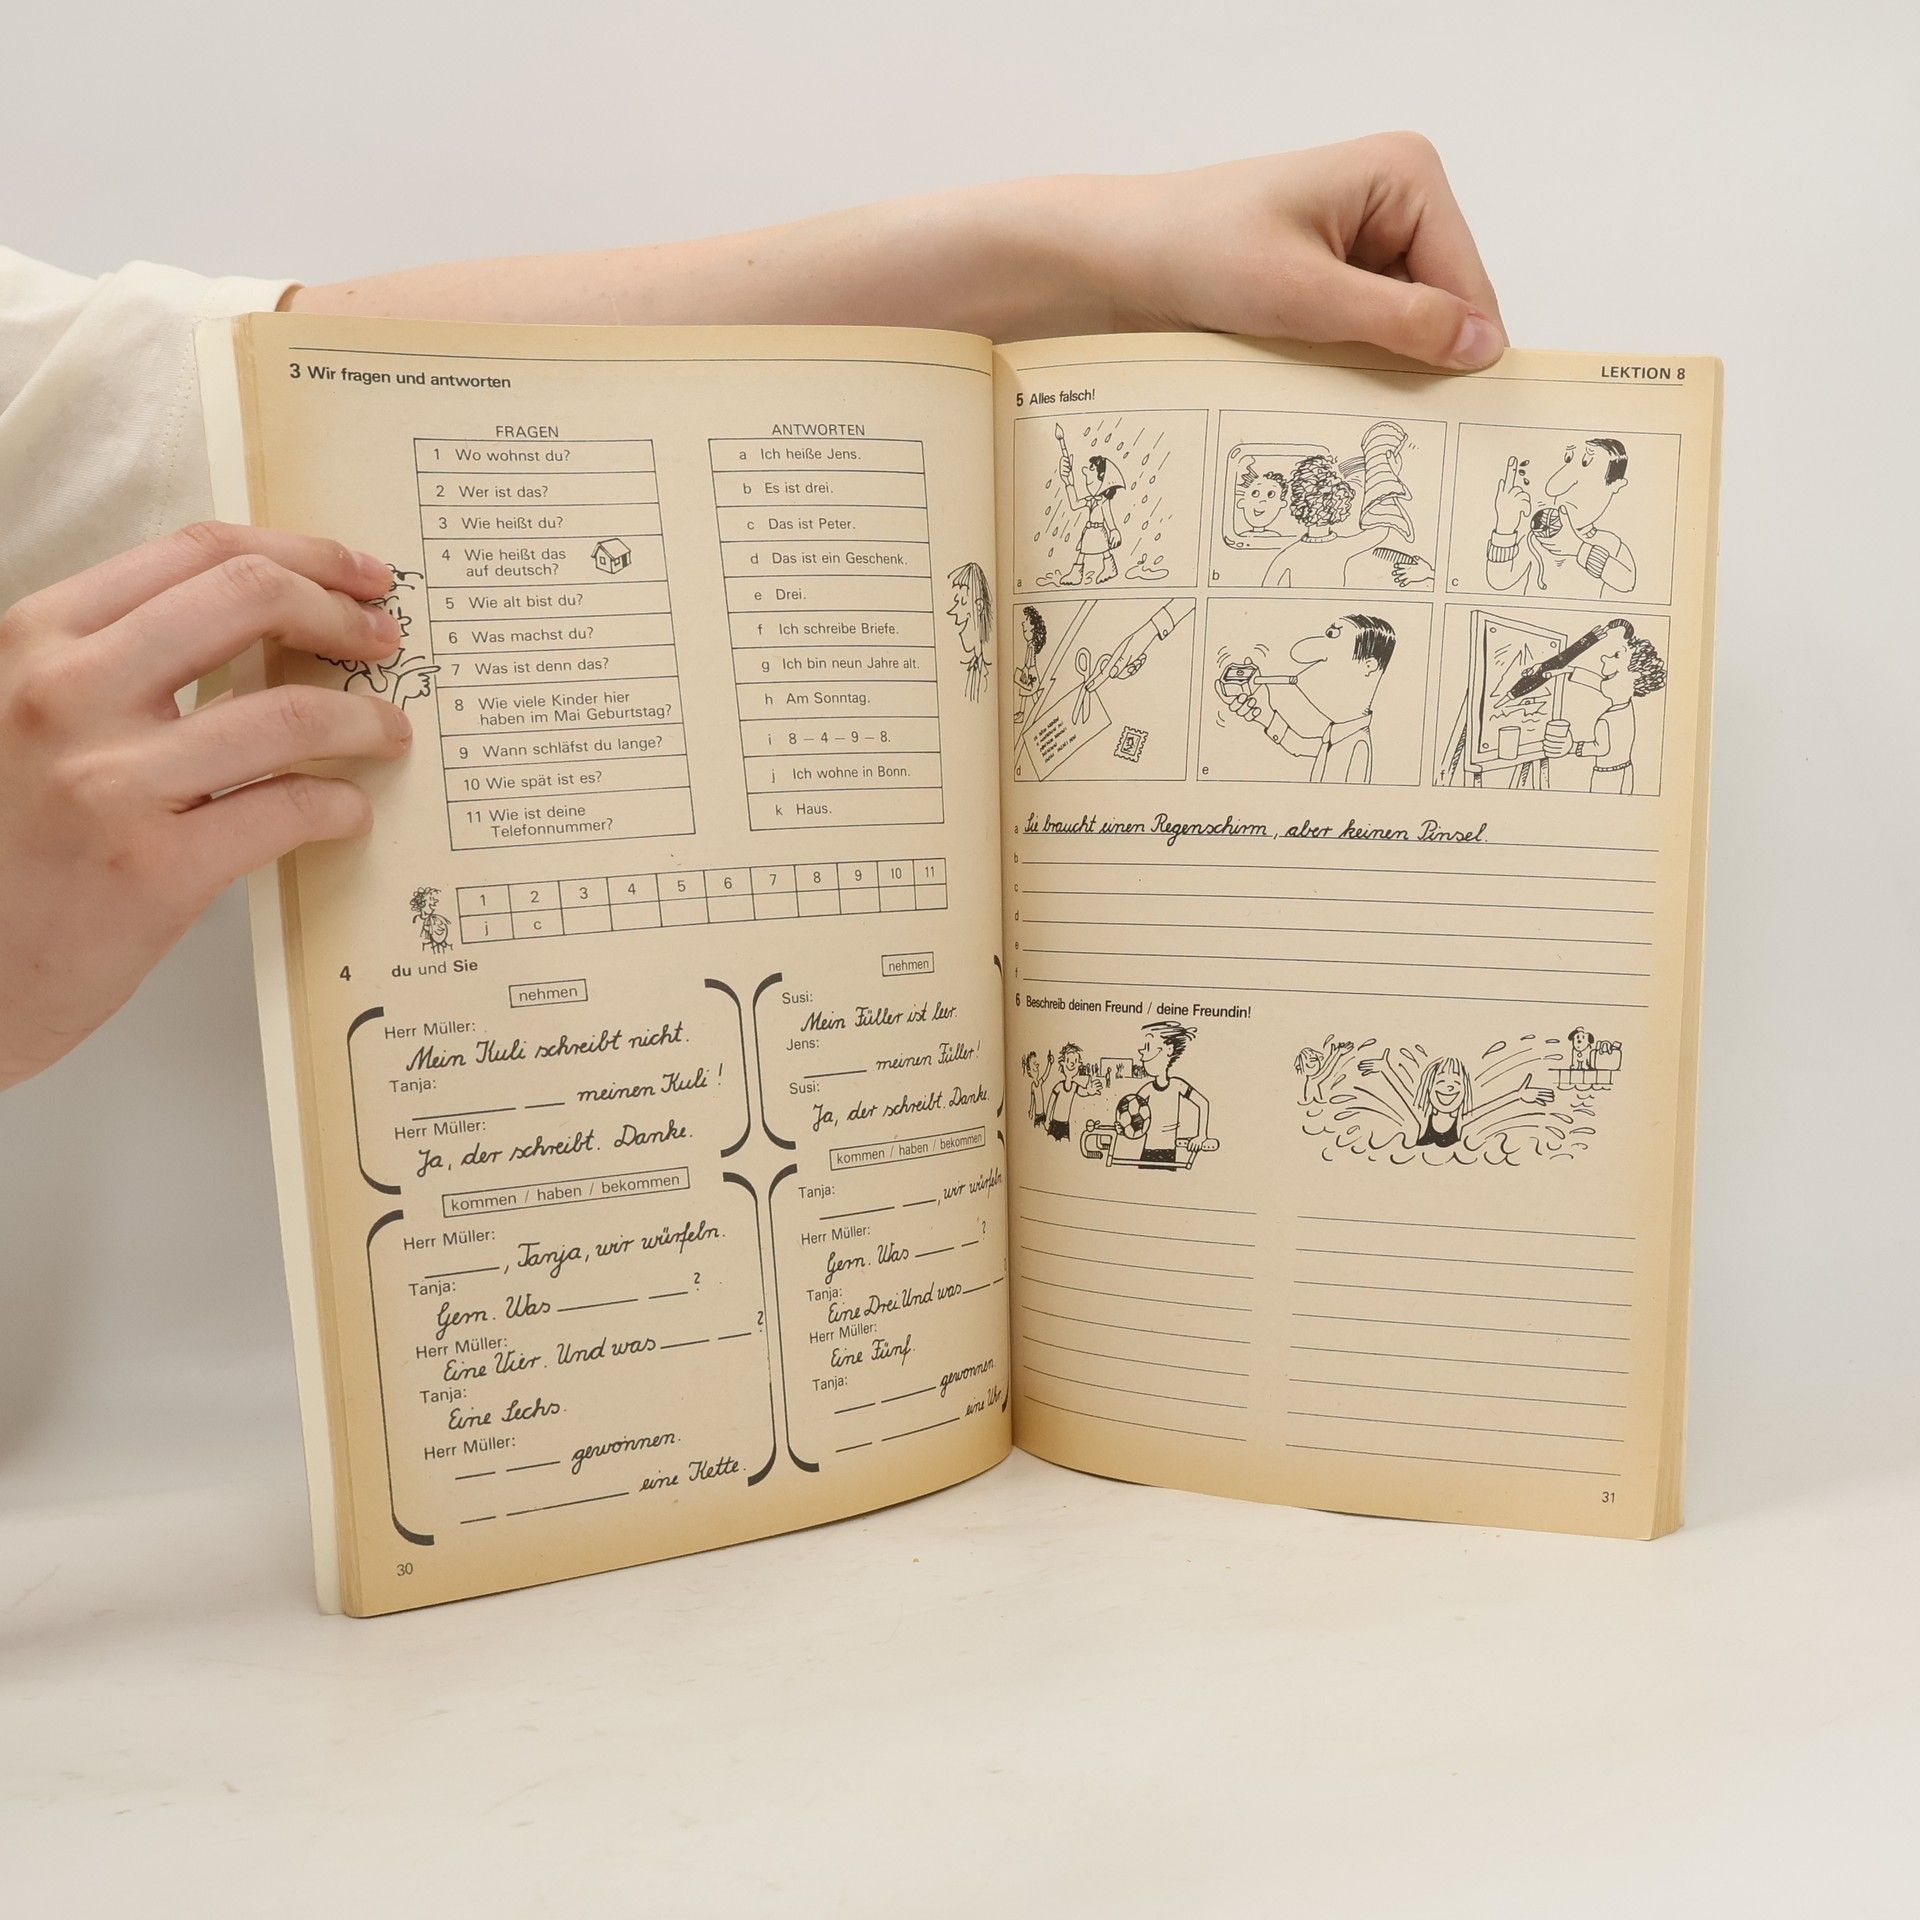 3 Wir fragen und antworten
FRAGEN
1 Wo wohnst du?
2 Wer ist das?
3 Wie heißt du?
4 Wie heißt das
auf deutsch?
5 Wie alt bist du?
6 Was machst du?
7 Was ist denn das?
8 Wie viele Kinder hier
haben im Mai Geburtstag?
9 Wann schläfst du lange?
10 Wie spät ist es?
11 Wie ist deine
Telefonnummer?
ANTWORTEN
a Ich heiße Jens.
b Es ist drei.
c Das ist Peter.
d Das ist ein Geschenk.
e Drei.
f Ich schreibe Briefe.
g Ich bin neun Jahre alt.
h Am Sonntag.
i 8 – 4 – 9 – 8.
j Ich wohne in Bonn.
k Haus.
1 2 3 4 5 6 7 8 9 10 11
j c
4 du und Sie
nehmen
Herr Müller:
Mein Kuli schreibt nicht.
Tanja:
______ ___ meinen Kuli!
Herr Müller:
Ja, der schreibt. Danke.
kommen / haben / bekommen
Herr Müller:
_____, Tanja, wir würfeln.
Tanja:
Gern. Was _____ ___?
Herr Müller:
Eine Vier. Und was ____ ___?
Tanja:
Eine Sechs.
Herr Müller:
___ ____ gewonnen.
___ ______ eine Kette.
nehmen
Susi:
Mein Füller ist leer.
Jens:
_____ meinen Füller!
Susi:
Ja, der schreibt. Danke.
kommen / haben / bekommen
Tanja:
_____ ____, wir würfeln
Herr Müller:
Gern. Was ____ ___?
Tanja:
Eine Drei. Und was ____ ___?
Herr Müller:
Eine Fünf.
Tanja:
___ ____ gewonnen.
___ ______ eine Uhr.
30
LEKTION 8
5 Alles falsch!
a
b
c
d
e
f
a Sie braucht einen Regenschirm, aber keinen Pinsel.
b
c
d
e
f
6 Beschreib deinen Freund / deine Freundin!
31